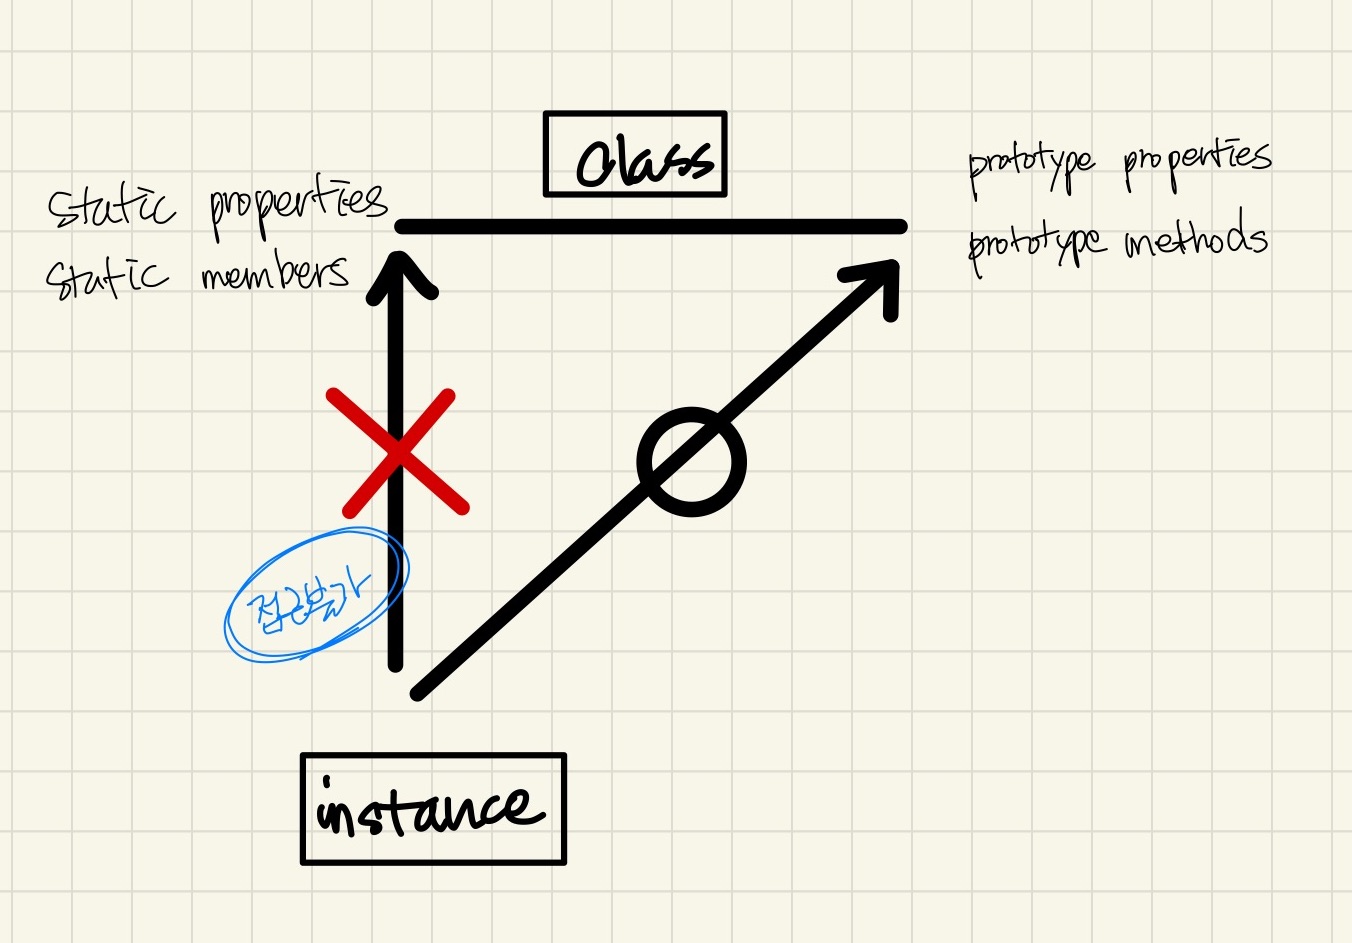 class
static properties
static members
prototype properties
prototype methods
접근불가
instance